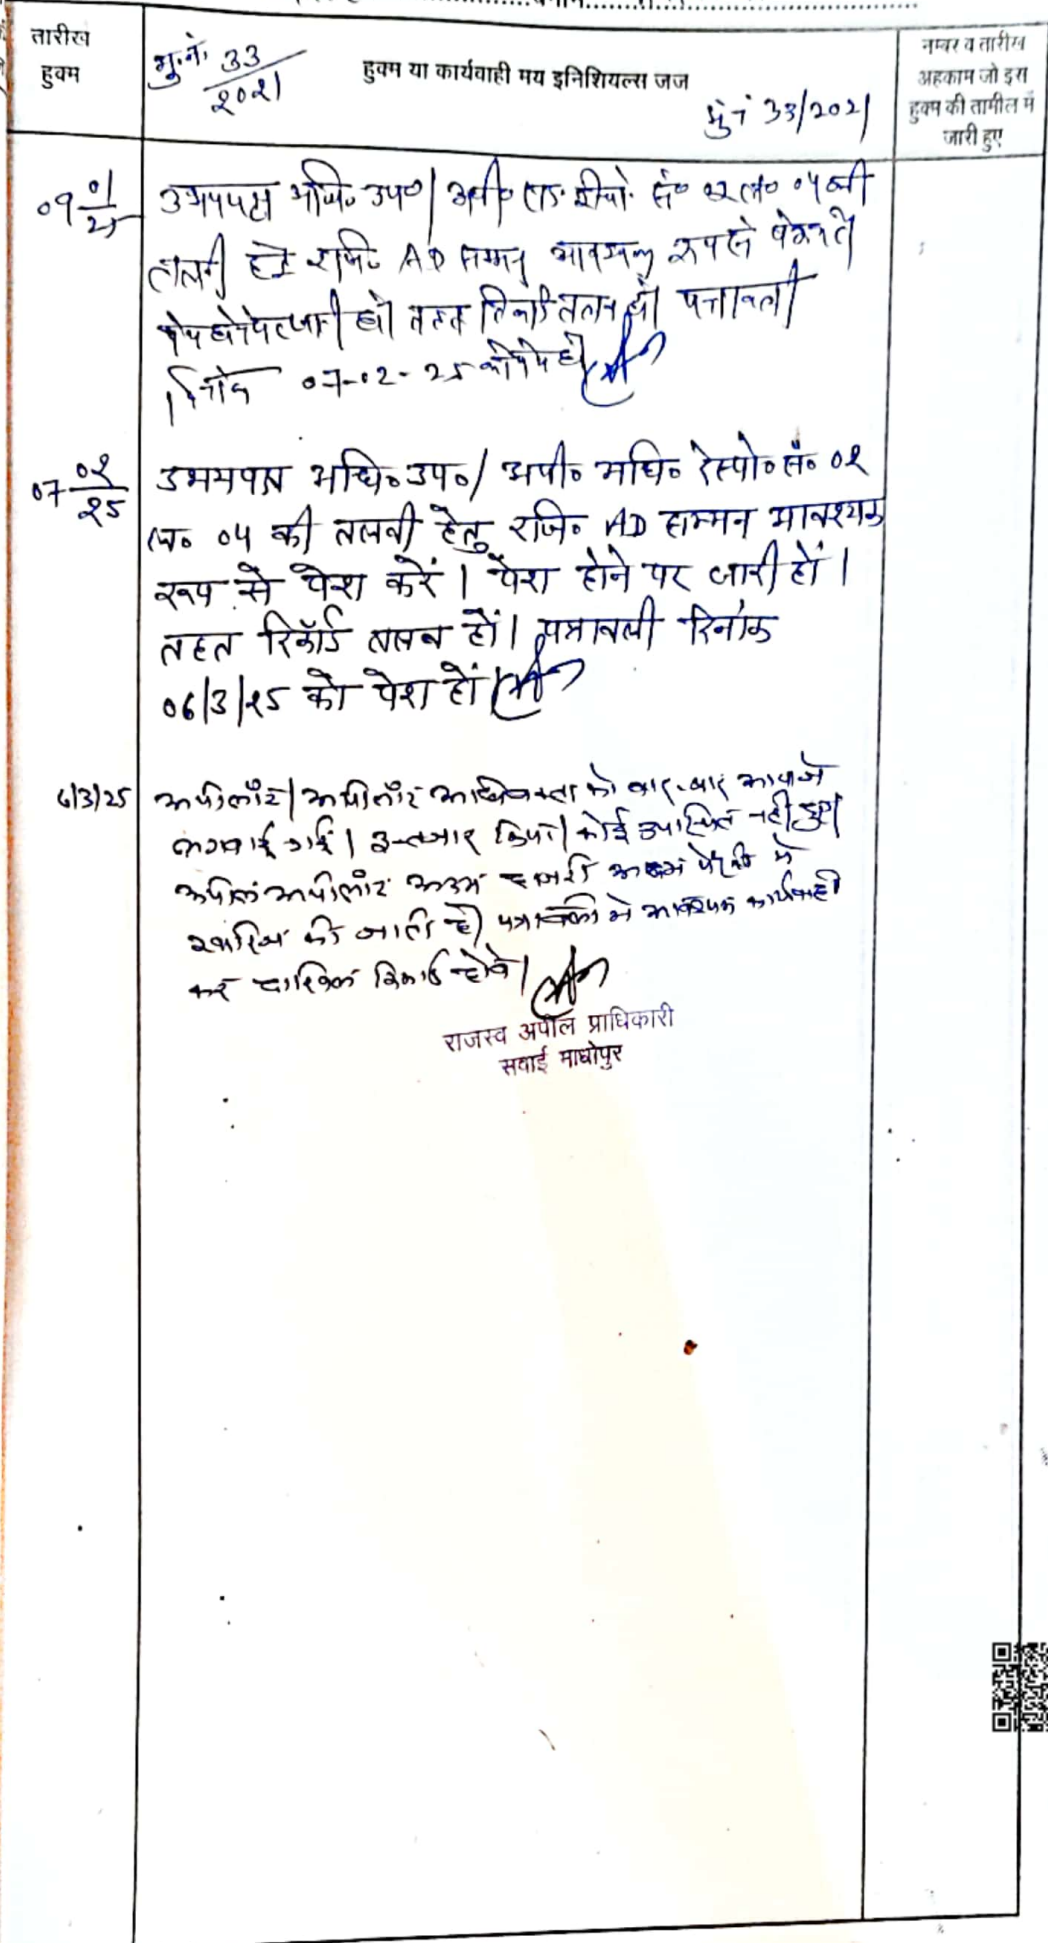 तारीख
हुक्म
मु.नं. 33/2021
हुक्म या कार्यवाही मय इनिशियल्स जज
मु.नं 33/2021
नम्बर व तारीख
अहकाम जो इस
हुक्म की तामील में
जारी हुए
09 01/25
उभयपक्ष अधि० उप०/ अपी० सं० 02 04 की
तलबी हेतु रजि० AD सम्मन आवश्यक रूप से पेश करें
पेश होने पर जारी हो तहत रिकॉर्ड तलब हो पत्रावली
दिनांक 07-02-25 को पेश हो
07 02/25
उभयपक्ष अधि० उप०/ अपी० अधि० रेस्पो० सं० 02
04 की तलबी हेतु रजि० AD सम्मन आवश्यक
रूप से पेश करें। पेश होने पर जारी हों।
तहत रिकॉर्ड तलब हों। पत्रावली दिनांक
06/3/25 को पेश हों।
6/3/25
अपीलांट/अपीलांट अधिवक्ता को बार-बार आवाजें
लगवाई गई। इन्तजार किया। कोई उपस्थित नहीं हुए।
अपील अपीलांट अदम हाजरी अदम पैरवी में
खारिज की जाती है। पत्रावली में आवश्यक कार्यवाही
कर दाखिल रिकार्ड होवे।
राजस्व अपील प्राधिकारी
सवाई माधोपुर